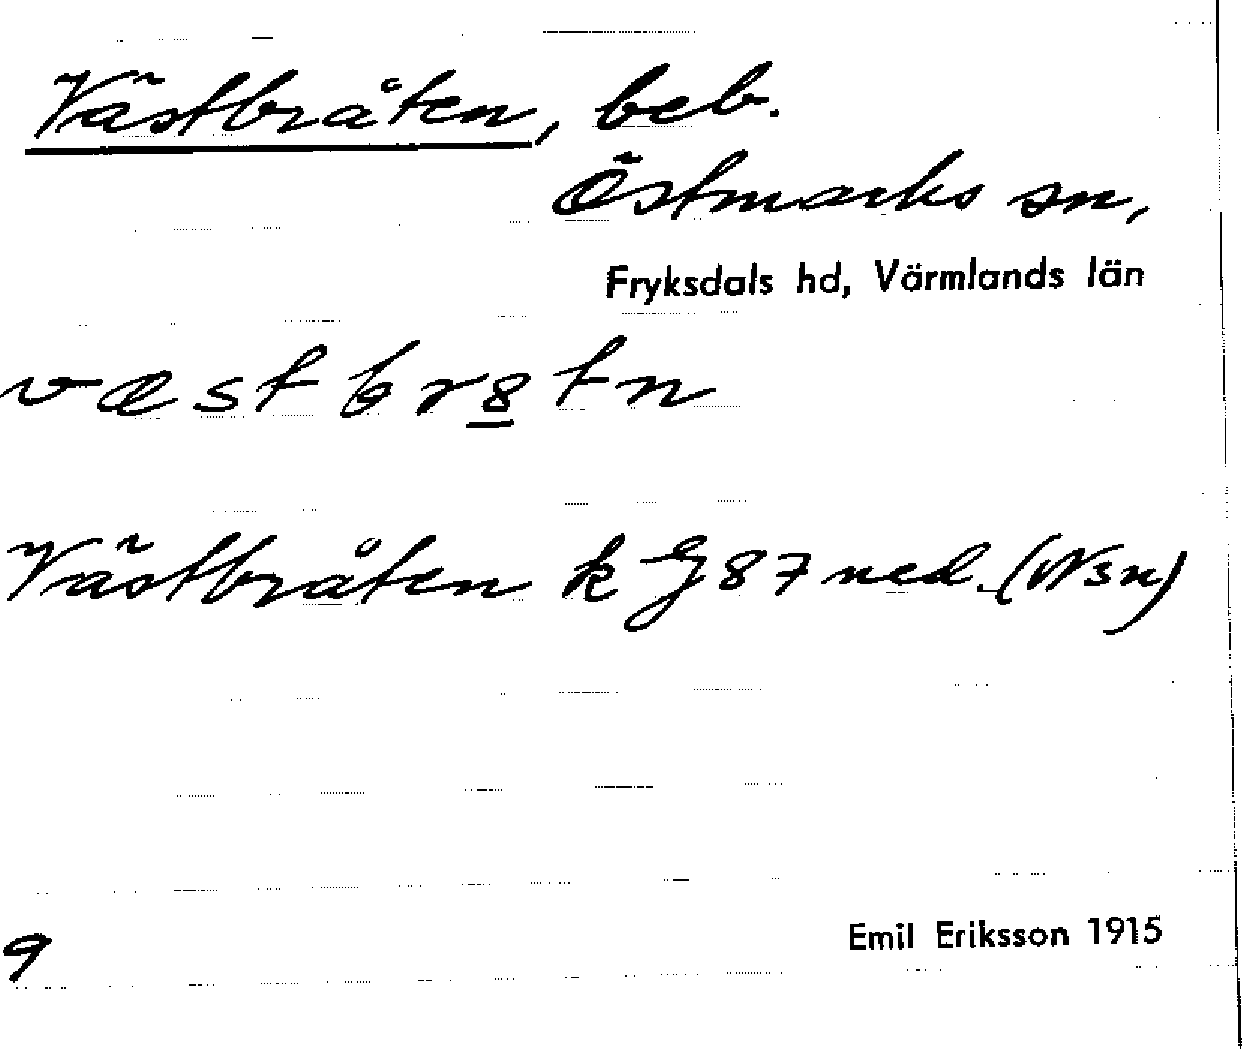 Västbråten, beb.
Östmarks sn,
Fryksdals hd, Värmlands län
væstbr8tn
Västbråten k G 87 ned. (Nsn)
9
Emil Eriksson 1915